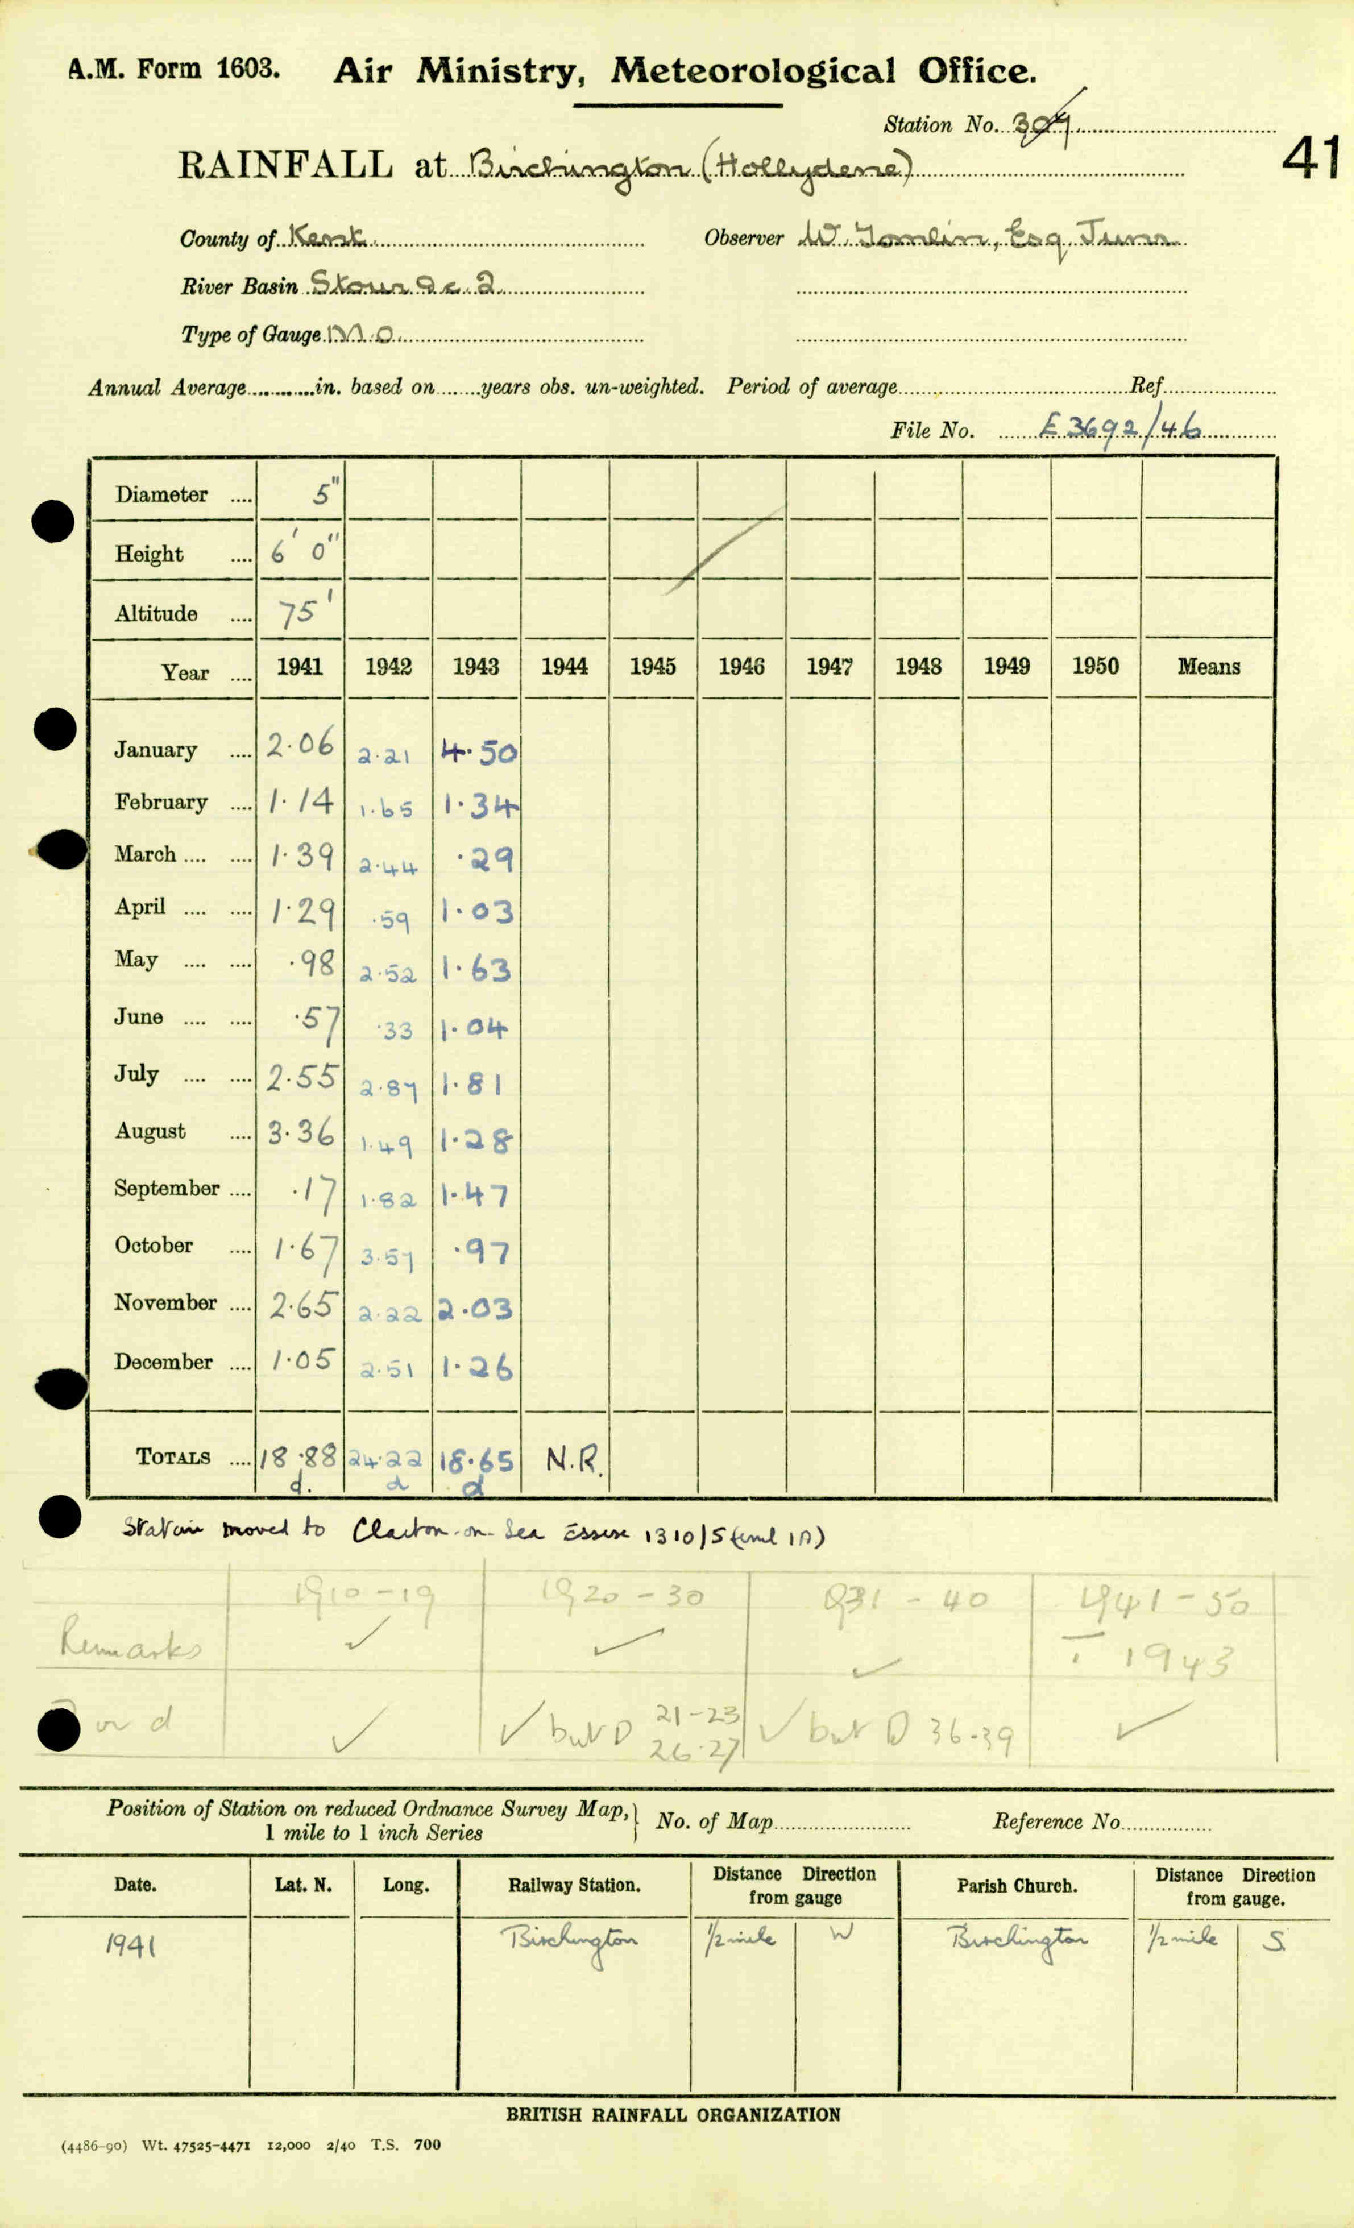 A.M. Form 1603. Air Ministry, Meteorological Office.
Station No. 309
41
RAINFALL at Birchington (Hollydene)
County of Kent Observer W. Tomlin, Esq, Junr
River Basin Stour &c. 2
Type of Gauge M.O.
Annual Average............in. based on........years obs. un-weighted. Period of average.......... Ref..........
File No. E 3692/46
Diameter .... 5"
Height .... 6' 0"
Altitude .... 75'
Year .... 1941 1942 1943 1944 1945 1946 1947 1948 1949 1950 Means
January .... 2.06 2.21 4.50
February .... 1.14 1.65 1.34
March .... .... 1.39 2.44 .29
April .... .... 1.29 .59 1.03
May .... .... .98 2.52 1.63
June .... .... .57 .33 1.04
July .... .... 2.55 2.87 1.81
August .... 3.36 1.49 1.28
September .... .17 1.82 1.47
October .... 1.67 3.57 .97
November .... 2.65 2.22 2.03
December .... 1.05 2.51 1.26
TOTALS .... 18.88 24.22 18.65 N.R.
d. d d
Station moved to Clacton-on-Sea Essex 1310/5
1910-19 1920-30 1931-40 1941-50
Remarks ✓ ✓ ✓ T 1943
or d ✓ ✓ but D 21-23 ✓ but D 36-39 ✓
26-27
Position of Station on reduced Ordnance Survey Map, No. of Map.......... Reference No..........
1 mile to 1 inch Series
Date. Lat. N. Long. Railway Station. Distance Direction from gauge Parish Church. Distance Direction from gauge.
1941 Birchington 1/2 mile W Birchington 1/2 mile S.
BRITISH RAINFALL ORGANIZATION
(4486-90) Wt. 47525-4471 12,000 2/40 T.S. 700